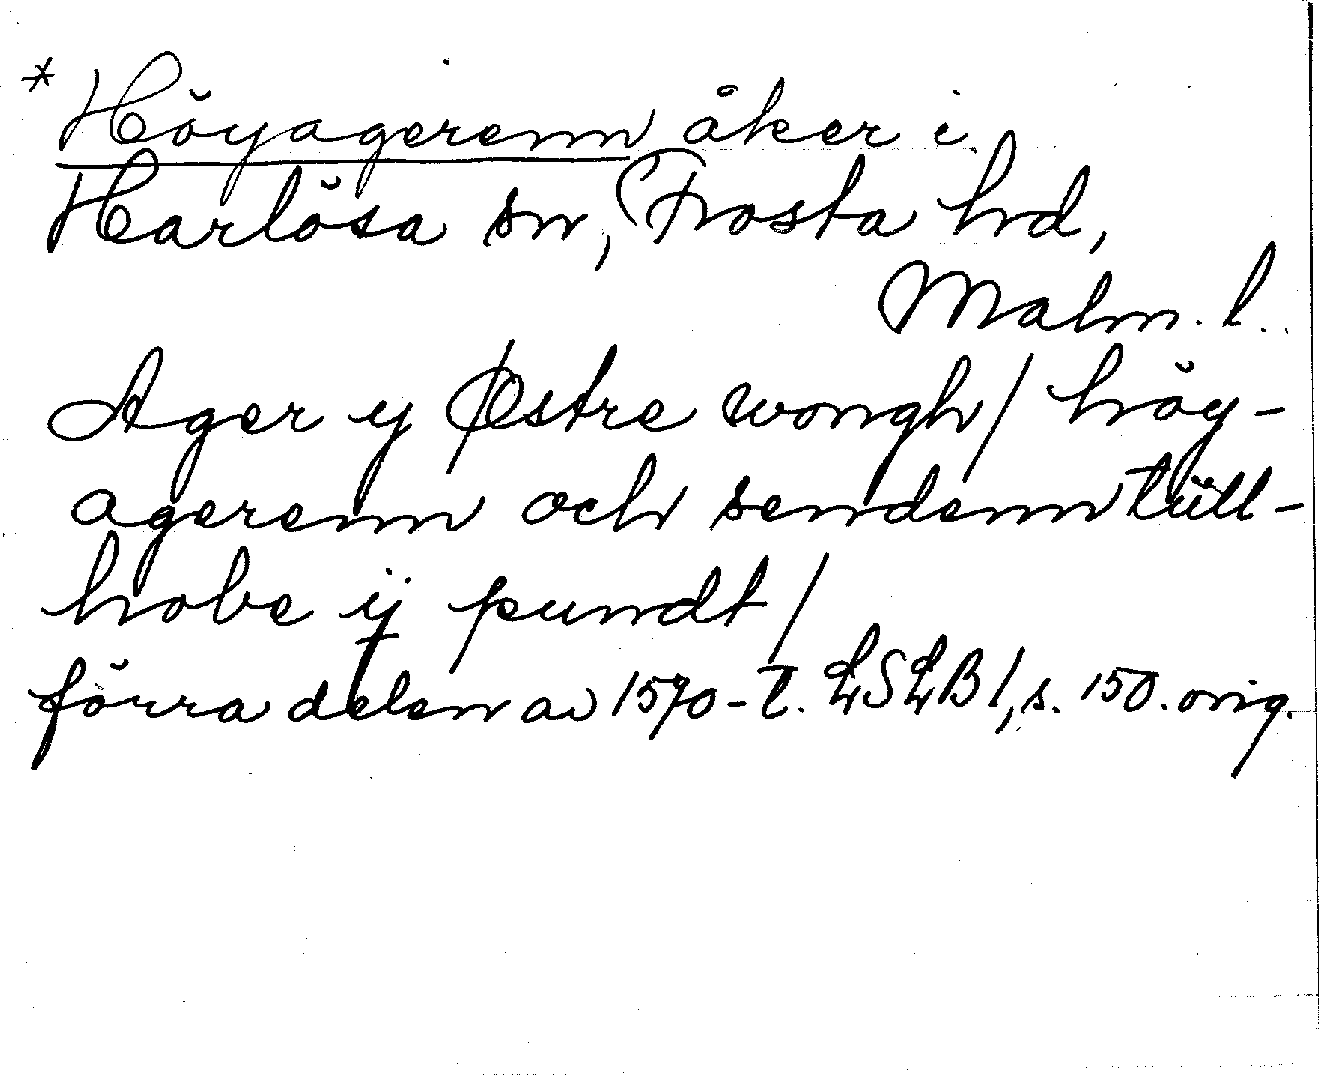 * Höyagerenn åker i
Harlösa sn, Frosta hd,
Malm. l.
Ager y Østre wongh / höy-
agerenn och sendenn tüll-
hobe ij pundt /
förra delen av 1570-t. LSLB I, s. 150. orig.